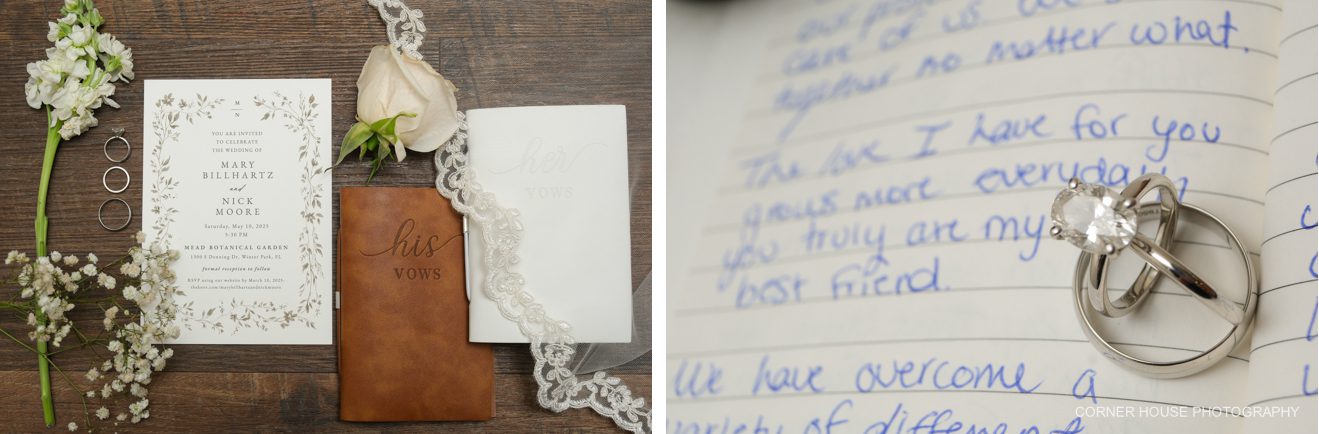 M
N
YOU ARE INVITED
TO CELEBRATE
THE WEDDING OF
MARY
BILLHARTZ
and
NICK
MOORE
Saturday, May 10, 2025
5:30 PM
MEAD BOTANICAL GARDEN
1300 S Denning Dr, Winter Park, FL
formal reception to follow
RSVP using our website by March 10, 2025
theknot.com/marybillhartzandnickmoore
his
VOWS
her
VOWS
care of us
together no matter what.
The love I have for you
grows more everyday,
you truly are my
best friend.
We have overcome a
variety of different
CORNER HOUSE PHOTOGRAPHY